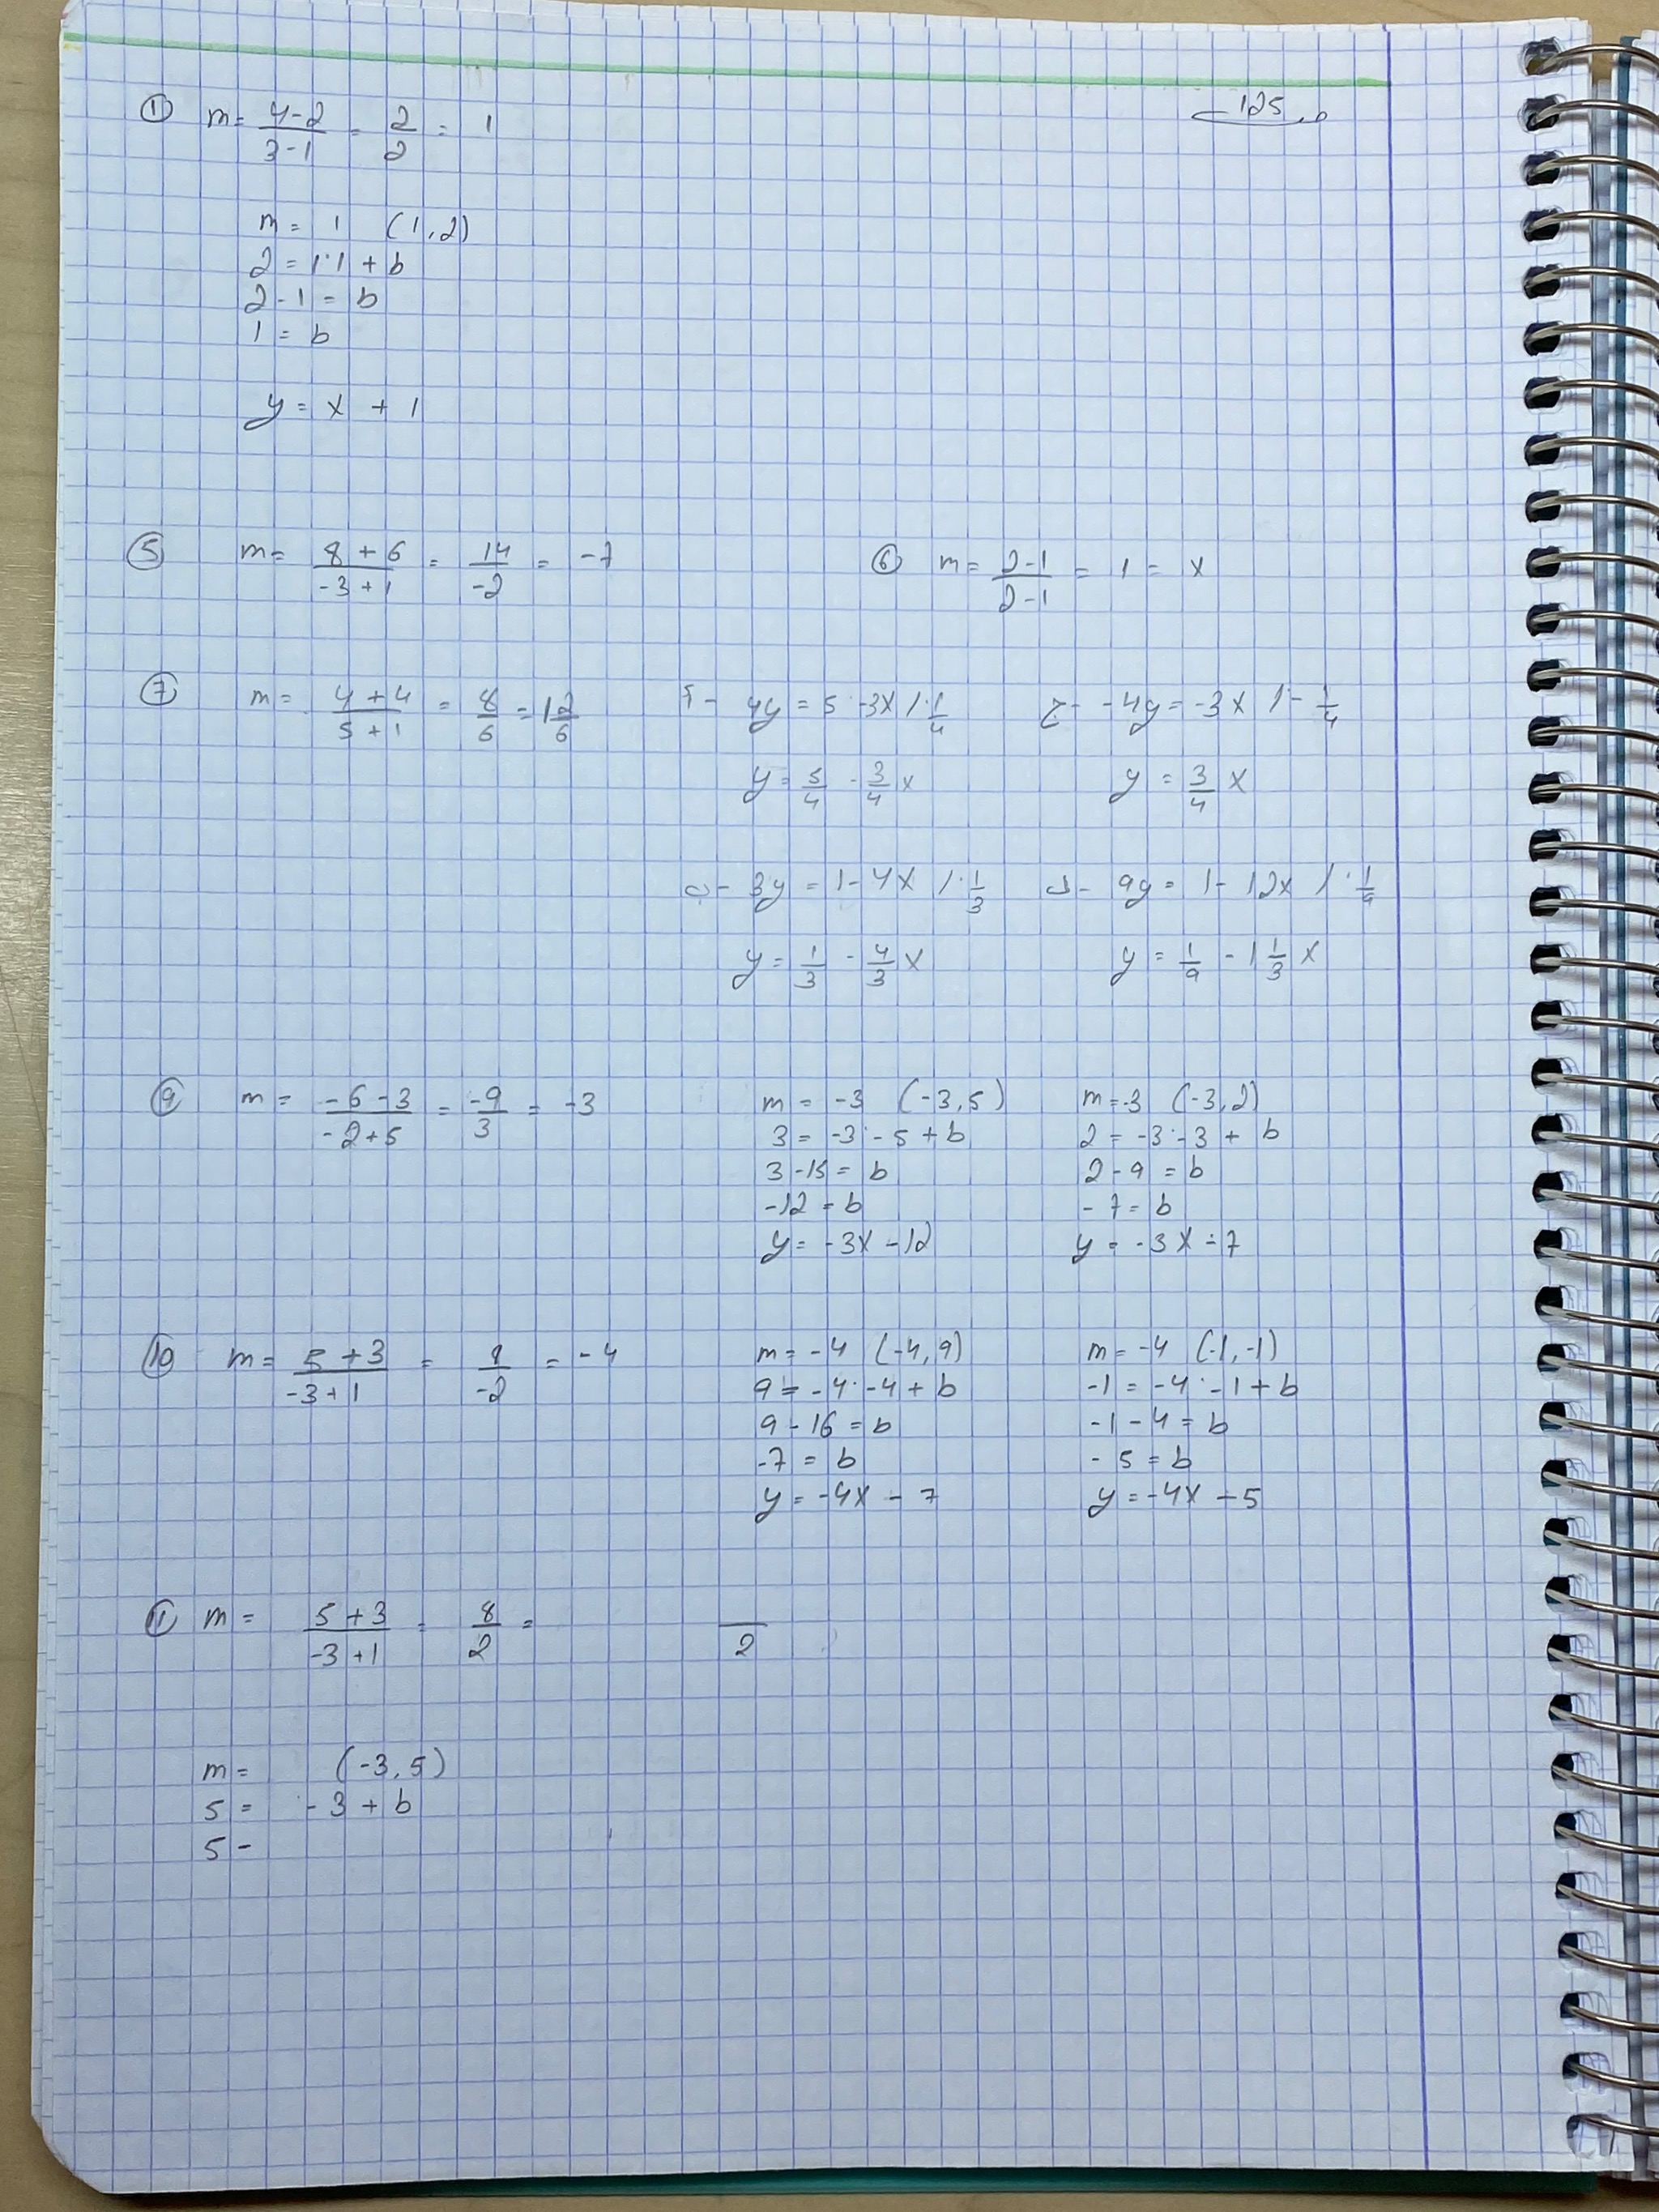 125
① m = 4-2/3-1 = 2/2 = 1
m = 1 (1,2)
2 = 1·1 + b
2-1 = b
1 = b
y = x + 1
⑤ m = 8+6/-3+1 = 14/-2 = -7
⑥ m = 2-1/2-1 = 1 = x
⑦ m = 4+4/5+1 = 8/6 = 1 2/6
4y = 5-3x /·1/4
y = 5/4 - 3/4 x
-4y = -3x /·-1/4
y = 3/4 x
3y = 1-4x /·1/3
y = 1/3 - 4/3 x
9y = 1-12x /·1/9
y = 1/9 - 1 1/3 x
⑨ m = -6-3/-2+5 = -9/3 = -3
m = -3 (-3,5)
3 = -3·-5+b
3-15 = b
-12 = b
y = -3x-12
m = -3 (-3,2)
2 = -3·-3+b
2-9 = b
-7 = b
y = -3x-7
⑩ m = 5+3/-3+1 = 8/-2 = -4
m = -4 (-4,9)
9 = -4·-4+b
9-16 = b
-7 = b
y = -4x-7
m = -4 (-1,-1)
-1 = -4·-1+b
-1-4 = b
-5 = b
y = -4x-5
⑪ m = 5+3/-3+1 = 8/2 =
/2
m = (-3,5)
5 = ·-3+b
5-